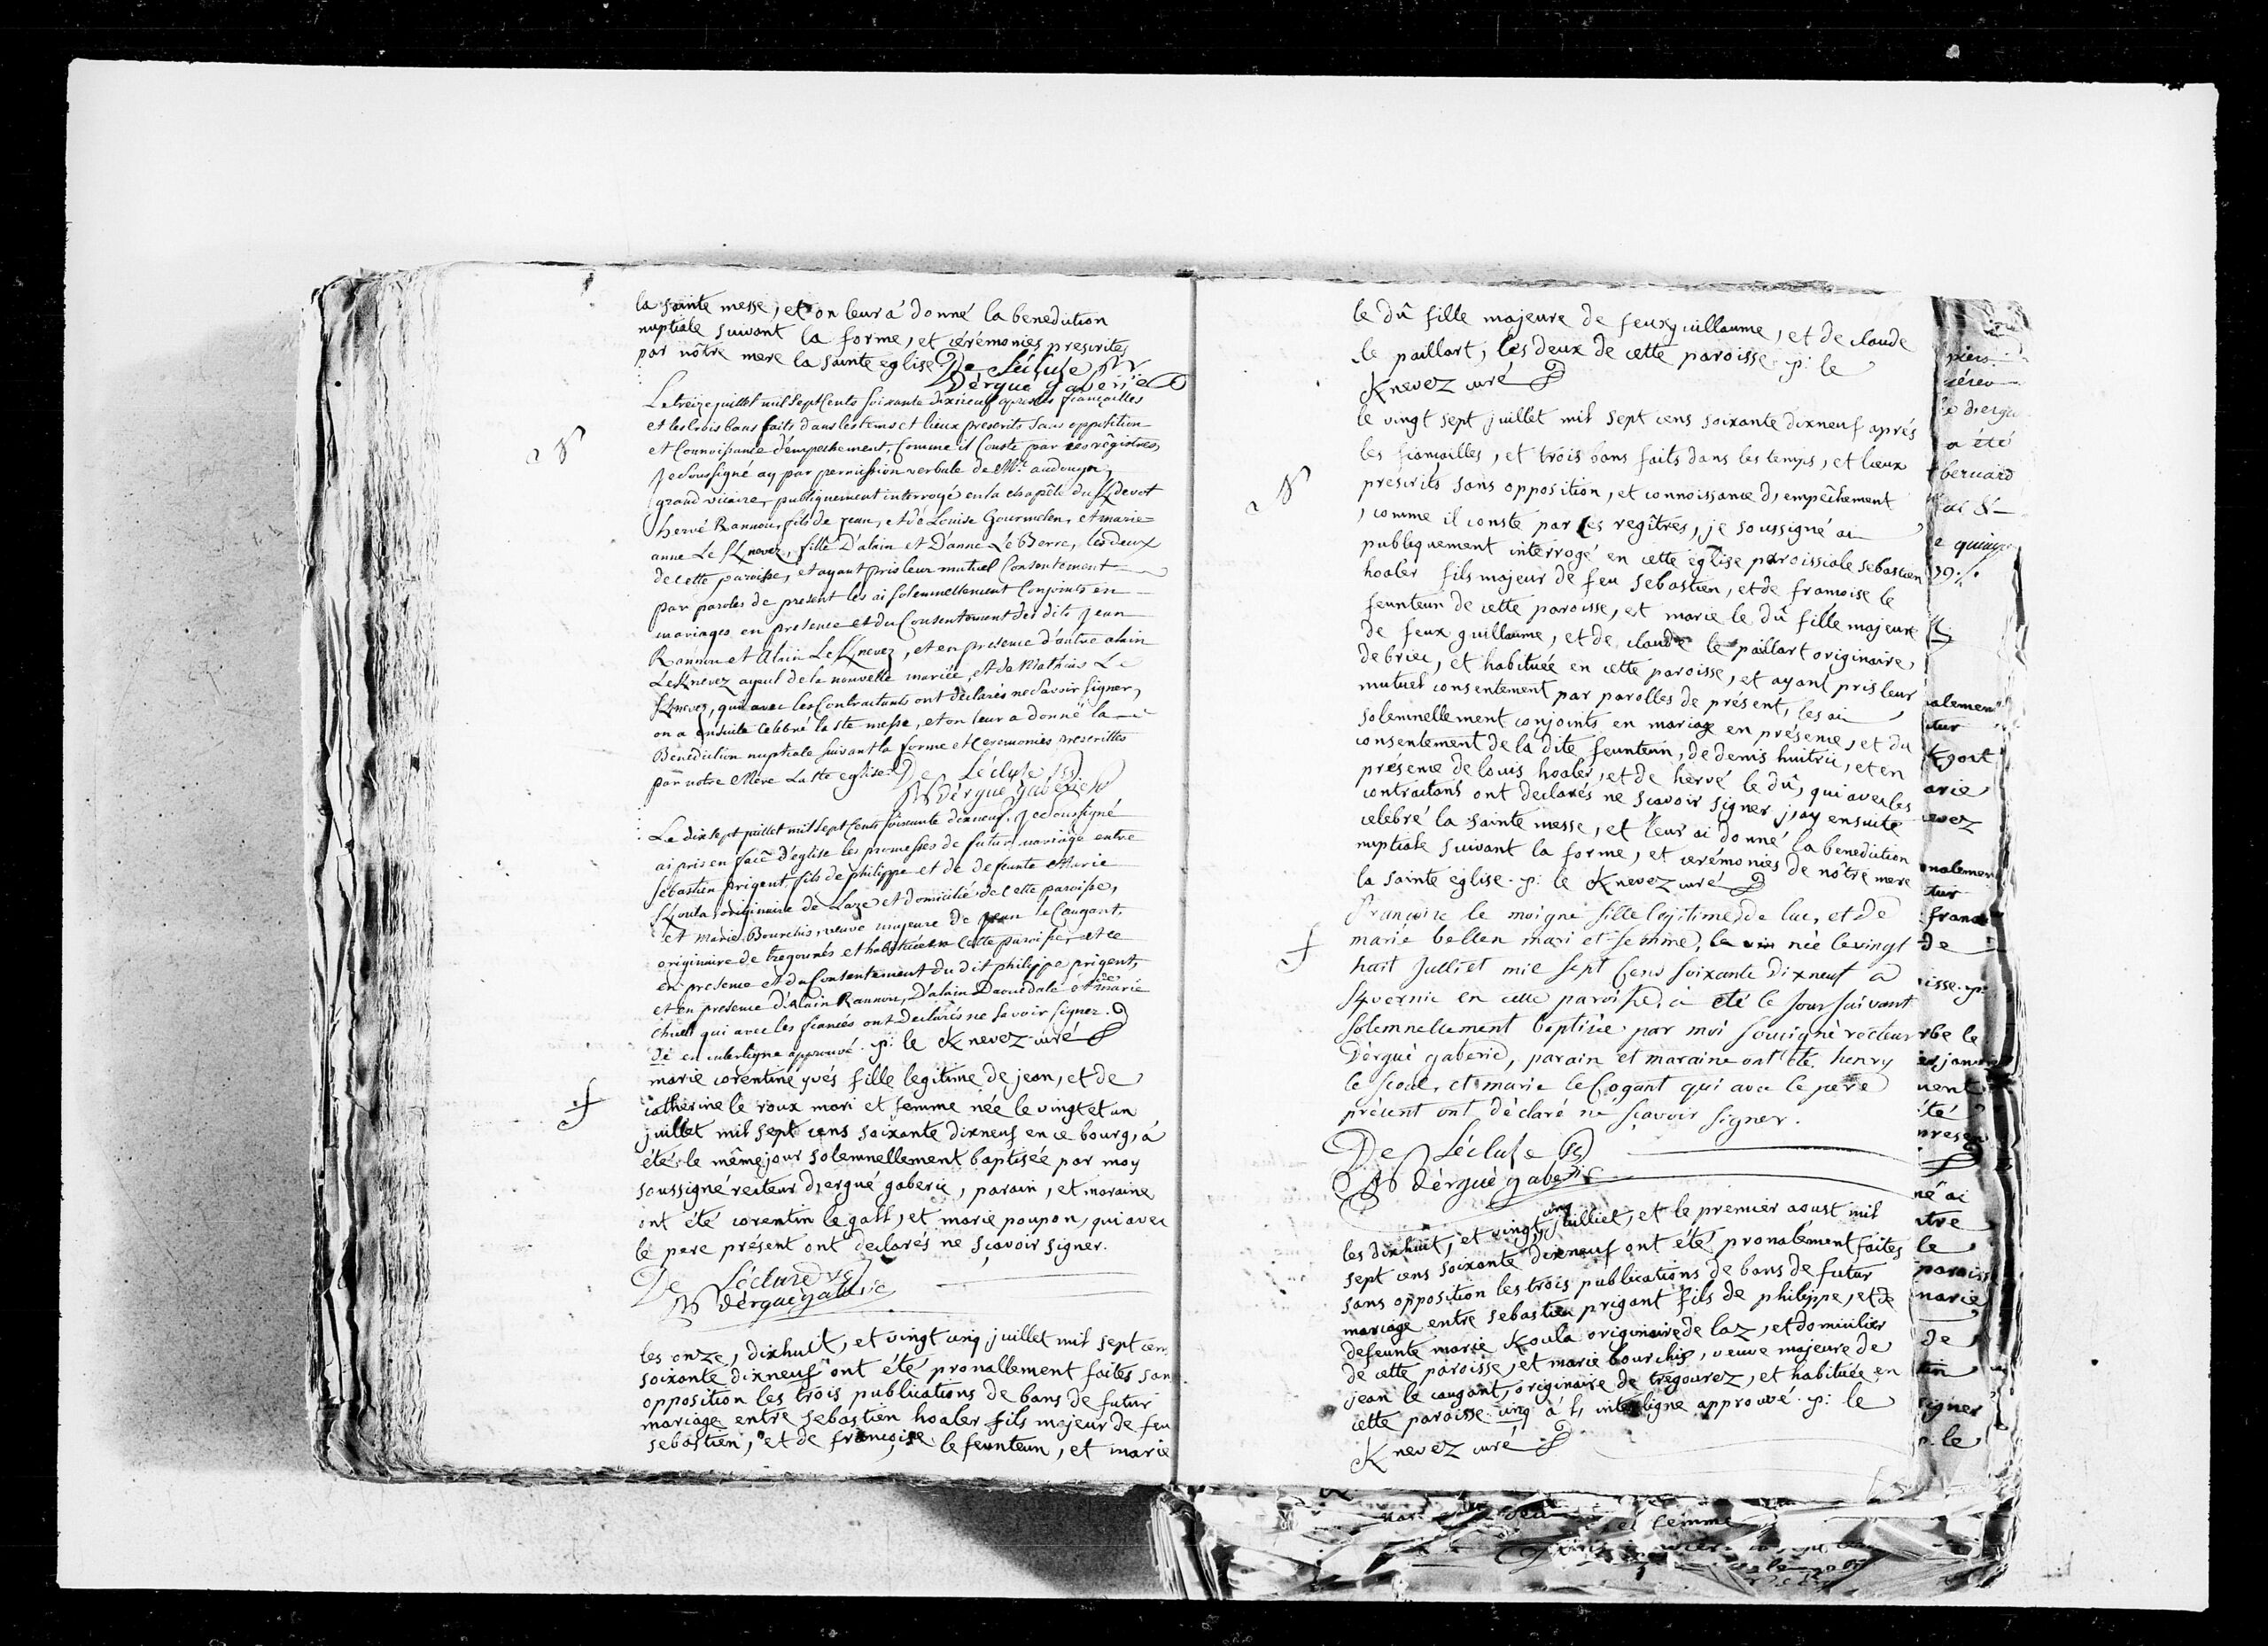 la sainte messe, et on leur a donné la benediction
nuptiale suivant la forme, et cérémonies prescrites
par nôtre mere la sainte eglise. De Lécluse
Dérgué gaberic
Le treize juillet mil sept Cents soixante dixneuf apres les fiançailles
et les trois bans faits dans les tems et lieux prescrits Sans opposition
et Connoissance d'empechement, Comme il Conste par les régistres,
Je Soussigné ay par permission verbale de Mr. audouyn,
grand vicaire, publiquement interrogé en la chapéle du K/devot
hervé Rannou, fils de jean, et de Louise Gourmelen, et marie
anne Le K/nevez, fille D'alain et D'anne Le Berre, les deux
de cette paroisse, et ayant pris leur mutuel Consentement
par paroles de present les ai solemnellement Conjoints en
mariages en presence et du Consentement des dits Jean
Rannou et Alain Le K/nevez, et en presence d'autre alain
Le K/nevez ayeul de la nouvelle mariée, et de Mathias Le
K/nevez, qui avec les Contractants ont déclarés ne Savoir signer,
on a ensuite Celebré la ste messe, et on leur a donné la
Benediction nuptiale suivant la forme et Ceremonies prescrittes
par notre Mere La ste eglise. De Lécluse
dérgué gaberic
Le dixsept juillet mil sept Cents soixante dixneuf. Je Soussigné
ai pris en facé d'eglise les promesses de futur mariage entre
sébastien prigent, fils de philippe et de defunte Marie
K/oula, originaire de Laze et domicilié de Cette paroisse,
et Marie Bourchis, veuve majeure de jean le Caugant,
originaire de tregourés et habituée en Cette paroisse, et ce
en presence et du Consentement du dit philippe prigent,
et en presence d'Alain Rannou, D'alain Daouedale et de marie
qui avec les fiancés ont declarés ne Savoir signer.
de en interligne approuvé. p: le K/nevez curé
marie corentine yvés fille legitime de jean, et de
catherine le roux mari et femme née le vingt et un
juillet mil sept cens soixante dixneuf en ce bourg, a
été le même jour solemnellement baptisée par moy
soussigné recteur d'ergué gaberic, parain, et maraine
ont été corentin le gall, et marie poupon, qui avec
le pere présent ont declarés ne sçavoir signer.
De Lécluse
dérgué gaberic
les onze, dixhuit, et vingt cinq juillet mil sept cens
soixante dixneuf ont été pronallement faites sans
opposition les trois publications de bans de futur
mariage entre sebastien hoaler fils majeur de feu
sebastien, et de françoise le feunteun, et marie
le dû fille majeure de feux guillaume, et de claude
le paillart, les deux de cette paroisse. p: le
K/nevez curé
le vingt sept juillet mil sept cens soixante dixneuf aprés
les fiançailles, et trois bans faits dans les temps, et lieux
prescrits sans opposition, et connoissance d'empêchement
, comme il conste par les regîtres, je soussigné ai
publiquement interrogé en cette église paroissiale sebastien
hoaler fils majeur de feu sebastien, et de françoise le
feunteun de cette paroisse, et marie le dû fille majeure
de feux guillaume, et de claude le paillart originaire
de briec, et habituée en cette paroisse, et ayant pris leur
mutuel consentement par parolles de présent, les ai
solemnellement conjoints en mariage en présence, et du
consentement de la dite feunteun, de denis huitric, et en
présence de louis hoaler, et de hervé le dû, qui avec les
contractans ont declarés ne scavoir signer, j'ay ensuite
celebré la sainte messe, et leur ai donné la benediction
nuptiale suivant la forme, et cerémonies de nôtre mere
la sainte église. p: le K/nevez curé
françoise le moigne fille legitime de luc, et de
marie bellen mari et femme, née le vingt
huit Julliet mil sept cens soixante dixneuf a
K/vernic en cette paroisse, a eté le jour suivant
solemnellement baptisée par moi soussigné recteur
d'ergué gaberic, parain et maraine ont eté henry
le scoul, et marie le Cogant qui avec le pere
présent ont déclaré ne sçavoir signer.
De Lécluse
dérgué gaberic
les dixhuit, et vingt cinq juilliet, et le premier aoust mil
sept cens soixante dixneuf ont été pronalement faites
sans opposition les trois publications de bans de futur
mariage entre sebastien prigant fils de philippe, et de
defeunte marie K/oula originaire de laz, et domicilier
de cette paroisse, et marie bourchis, veuve majeure de
jean le caugant, originaire de tregourez, et habituée en
cette paroisse. cinq à l'interligne approuvé. p: le
K/nevez curé